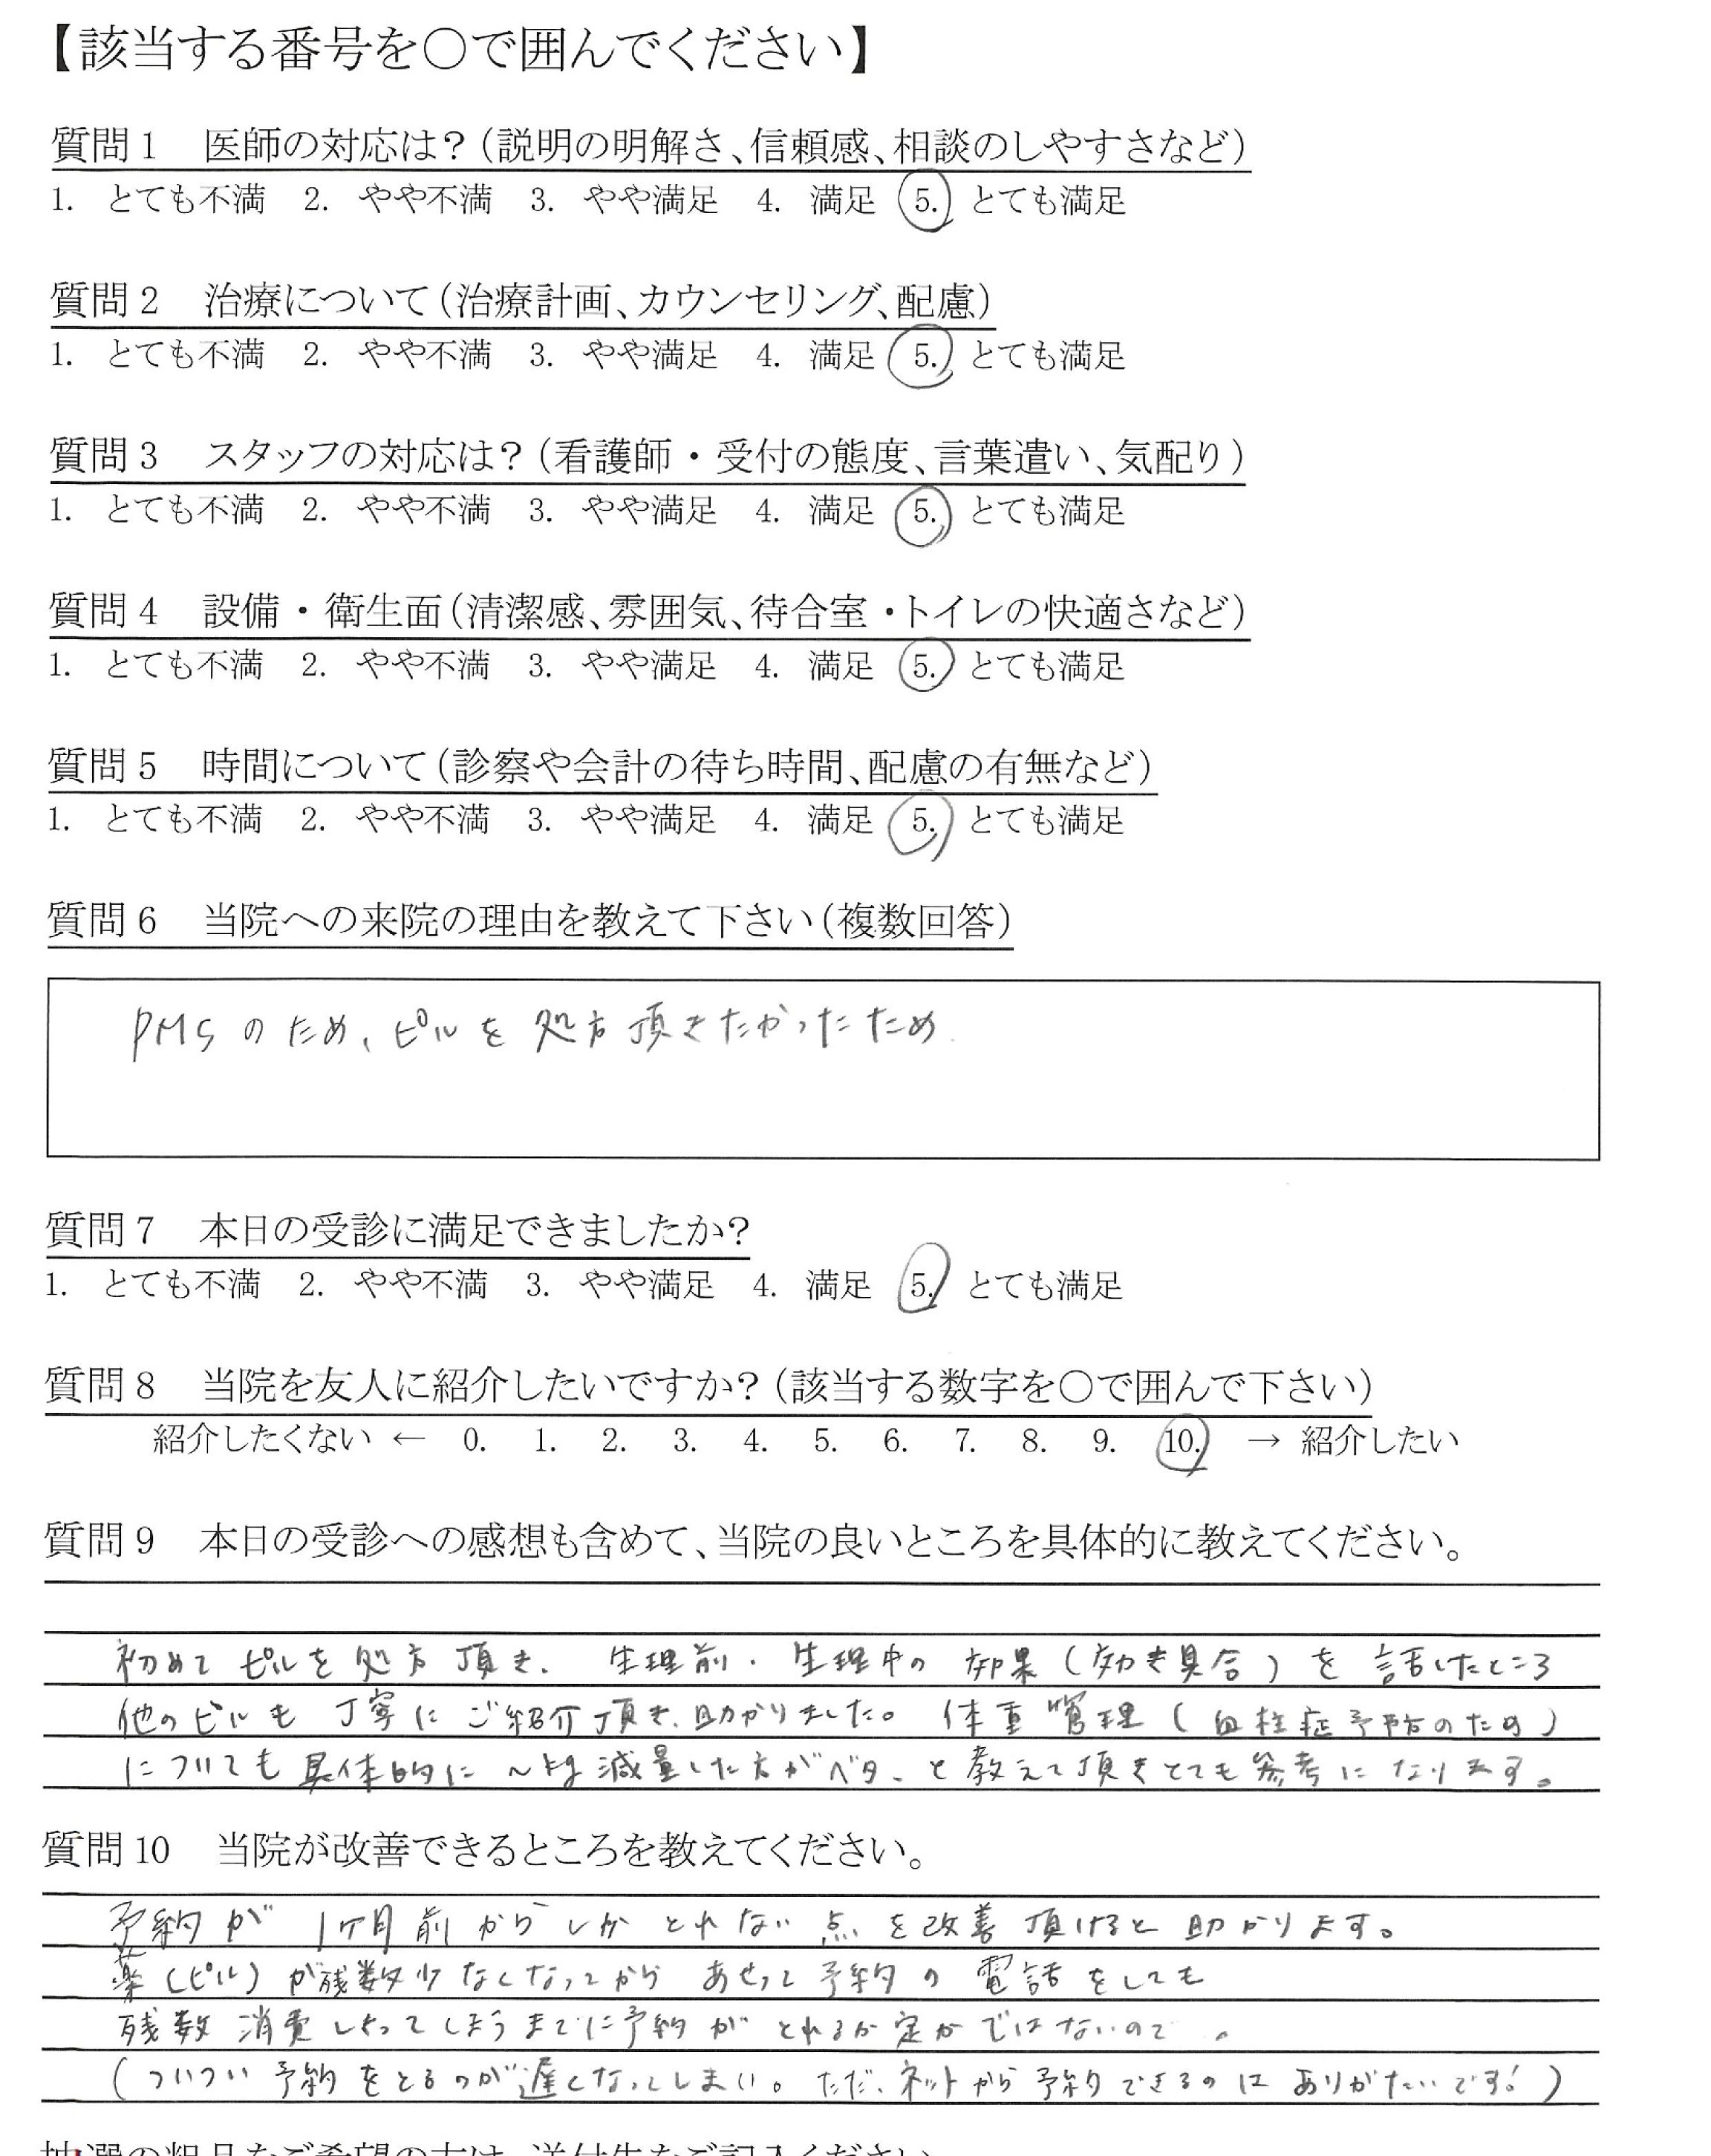 【該当する番号を〇で囲んでください】
質問1　医師の対応は？（説明の明解さ、信頼感、相談のしやすさなど）
1. とても不満　2. やや不満　3. やや満足　4. 満足　5. とても満足
質問2　治療について（治療計画、カウンセリング、配慮）
1. とても不満　2. やや不満　3. やや満足　4. 満足　5. とても満足
質問3　スタッフの対応は？（看護師・受付の態度、言葉遣い、気配り）
1. とても不満　2. やや不満　3. やや満足　4. 満足　5. とても満足
質問4　設備・衛生面（清潔感、雰囲気、待合室・トイレの快適さなど）
1. とても不満　2. やや不満　3. やや満足　4. 満足　5. とても満足
質問5　時間について（診察や会計の待ち時間、配慮の有無など）
1. とても不満　2. やや不満　3. やや満足　4. 満足　5. とても満足
質問6　当院への来院の理由を教えて下さい（複数回答）
PMSのため、ピルを処方頂きたかったため
質問7　本日の受診に満足できましたか？
1. とても不満　2. やや不満　3. やや満足　4. 満足　5. とても満足
質問8　当院を友人に紹介したいですか？（該当する数字を〇で囲んで下さい）
紹介したくない ← 0. 1. 2. 3. 4. 5. 6. 7. 8. 9. 10. → 紹介したい
質問9　本日の受診への感想も含めて、当院の良いところを具体的に教えてください。
初めてピルを処方頂き、生理前・生理中の効果（効き具合）を話したところ
他のピルも丁寧にご紹介頂き、助かりました。体重管理（血栓症予防のため）
についても具体的に〜kg減量した方がベター、と教えて頂きとても参考になります。
質問10　当院が改善できるところを教えてください。
予約が1ケ月前からしかとれない点を改善頂けると助かります。
薬（ピル）が残数少なくなってからあせって予約の電話をしても
残数消費しきってしまうまでに予約がとれるか定かではないので。
（ついつい予約をとるのが遅くなってしまい。ただ、ネットから予約できるのはありがたいです！）
抽選の粗品をご希望の方は、送付先をご記入ください